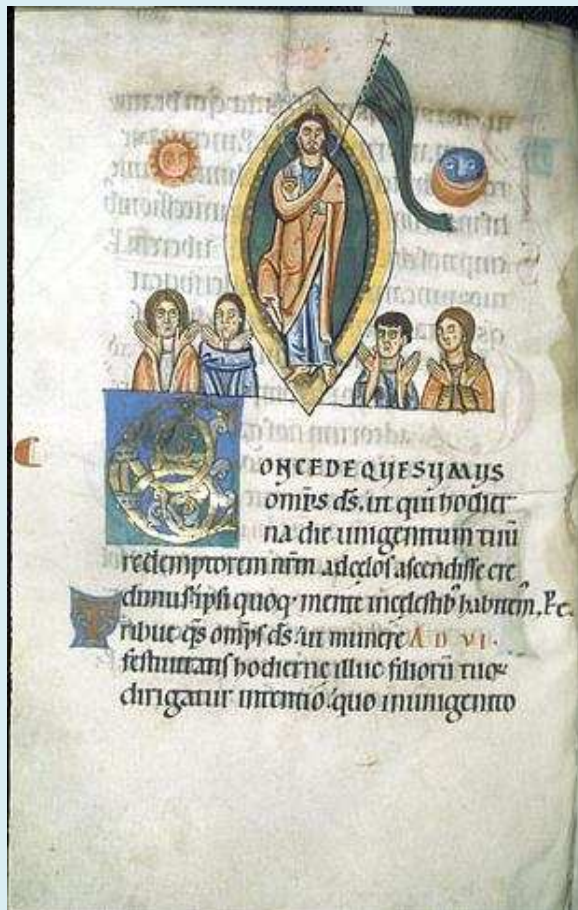 CONCEDE QUESUMUS
omp̄s ds̄. ut qui hodier
na die unigenitum tuū
redemptorem nr̄m ad celos ascendisse cre
dimus ipsi quoq; mente in celestib; habitem᷒. P̄ c.
Tribue qs̄ omp̄s ds̄. ut munere AD VI.
festiuitatis hodierne illuc filiorū tuoꝝ
dirigatur intentio. quo in unigenito